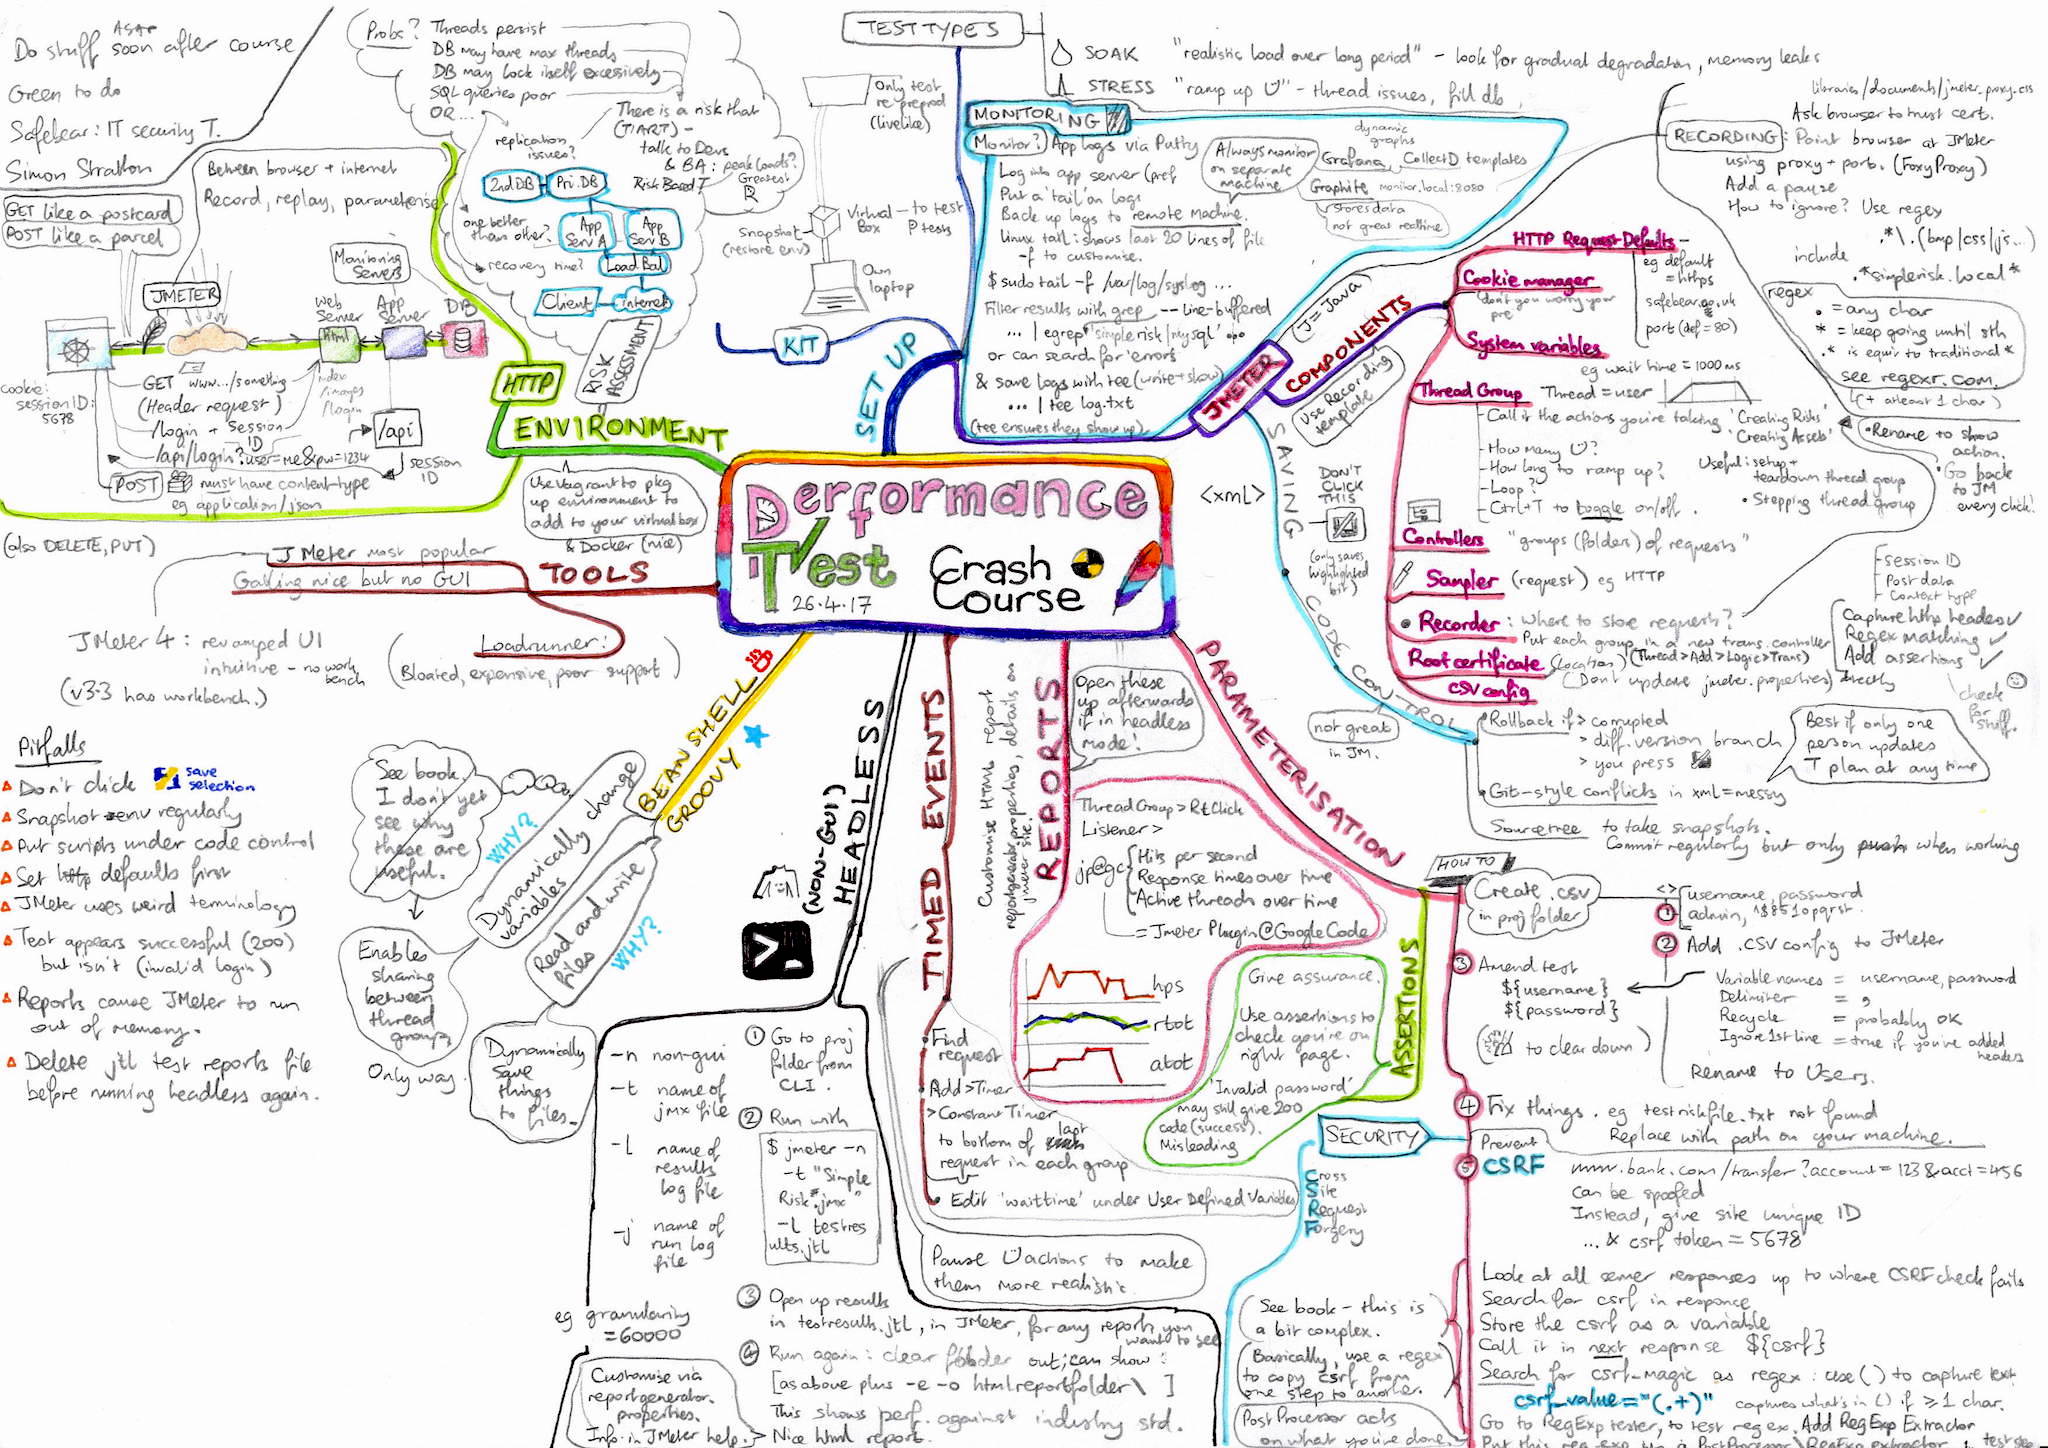 Do stuff ASAP soon after course
Green to do
Safebear: IT security T.
Simon Stratton
GET like a postcard
POST like a parcel
Between browser + internet
Record, replay, parameterise
Monitoring Servers
JMETER
Web Server
App Server
DB
html
index
/images
/login
cookie:
session ID:
5678
GET www.../something
(Header request)
/login + session ID
/api/login?user=me&pw=1234
/api
session ID
POST
must have content-type
eg application/json
(also DELETE, PUT)
HTTP
ENVIRONMENT
Use vagrant to pkg
up environment to
add to your virtualbox
& Docker (nice)
Probs? Threads persist
DB may have max threads
DB may lock itself excessively
SQL queries poor
OR...
There is a risk that
(TIART) -
talk to Devs
& BA: peak loads?
Risk Based T
Greatest R
replication issues?
2nd DB
Pri. DB
one better than other?
App Serv A
App Serv B
recovery time?
Load Bal
Client
internet
RISK ASSESSMENT
TEST TYPES
SOAK "realistic load over long period" - look for gradual degradation, memory leaks
STRESS "ramp up" - thread issues, fill db
Only test
re-preprod
(livelike)
Virtual Box
to test P tests
snapshot
(restore env)
Own laptop
KIT
SET UP
MONITORING
Monitor? App logs via Putty
Log into app server (pref
Put a 'tail' on logs
Back up logs to remote machine.
Linux tail: shows last 20 lines of file
-f to customise.
$ sudo tail -f /var/log/syslog ...
Filter results with grep -- line-buffered
... | egrep 'simplerisk|mysql' ...
or can search for 'errors'
& save logs with tee (write + show)
... | tee log.txt
(tee ensures they show up)
Always monitor
on separate
machine
dynamic graphs
Grafana
CollectD templates
Graphite monitor.local:8080
stores data
not great realtime
JMETER
J = Java
COMPONENTS
Use Recording template
RECORDING:
libraries/documents/jmeter_proxy.css
Ask browser to trust cert.
Point browser at JMeter
using proxy + port. (FoxyProxy)
Add a pause
How to ignore? Use regex
.*\.(bmp|css|js...)
include
.*simplerisk.local*
regex
. = any char
* = keep going until sth
.* is equiv to traditional *
see regexr.com.
(+ at least 1 char)
HTTP Request Defaults
eg default
= https
safebear.co.uk
port (def = 80)
Cookie manager
'don't you worry your pre'
System variables
eg wait time = 1000 ms
Thread Group
Thread = user
Call it the actions you're taking 'Creating Risks'
'Creating Assets'
How many?
How long to ramp up?
Loop?
Ctrl+T to toggle on/off.
Useful: setup +
teardown thread group
Stepping thread group
Rename to show
action.
Go back
to JM
every click!
Controllers "groups (folders) of requests"
Sampler (request) eg HTTP
Recorder: Where to store requests?
Put each group in a new trans. controller
(Thread > Add > Logic > Trans)
Root certificate (location)
(Don't update jmeter.properties) directly
CSV config
Session ID
Post data
Context type
Capture http headers ✓
Regex matching ✓
Add assertions ✓
check for stuff.
SAVING
<xml>
DON'T
CLICK
THIS
(only saves
highlighted
bit)
CODE CONTROL
not great
in JM.
Rollback if > corrupted
> diff. version branch
> you press
Git-style conflicts in xml = messy
Sourcetree to take snapshots.
Commit regularly but only push when working
Best if only one
person updates
T plan at any time
Performance
Test
Crash
Course
26.4.17
TOOLS
JMeter most popular
Gatling nice but no GUI
Loadrunner:
(Bloated, expensive, poor support)
JMeter 4: revamped UI
intuitive - no work bench
(v3.3 has workbench.)
Pitfalls
Don't click save selection
Snapshot env regularly
Put scripts under code control
Set http defaults first
JMeter uses weird terminology
Test appears successful (200)
but isn't (invalid login)
Reports cause JMeter to run
out of memory.
Delete jtl test reports file
before running headless again.
BEAN SHELL
GROOVY
See book.
I don't yet
see why
these are
useful.
WHY?
Dynamically change
variables
Read and write
files
WHY?
Enables
sharing
between
thread
groups
Only way.
Dynamically
save
things
to files.
(NON-GUI)
HEADLESS
-n non-gui
-t name of
jmx file
-l name of
results
log file
-j name of
run log
file
1 Go to proj
folder from
CLI.
2 Run with
$ jmeter -n
-t "Simple
Risk.jmx"
-l testres
ults.jtl
3 Open up results
in testresults.jtl, in JMeter, for any reports you
want to see
4 Run again: clear folder out; can show:
[as above plus -e -o htmlreportfolder\ ]
This shows perf. against industry std.
> Nice html report.
eg granularity
= 60000
Customise via
reportgenerator.
properties.
Info in JMeter help.
TIMED EVENTS
Find
request
Add > Timer
> Constant Timer
to bottom of last
request in each group
Edit 'waittime' under User Defined Variables
Pause actions to make
them more realistic.
REPORTS
Customise HTML report
reportgenerator.properties, details on
jmeter site.
Open these
up afterwards
if in headless
mode!
Thread Group > Rt Click
Listener >
jp@gc
Hits per second
Response times over time
Active threads over time
= Jmeter Plugin @ Google Code
hps
rtot
atot
PARAMETERISATION
ASSERTIONS
Give assurance.
Use assertions to
check you're on
right page.
'Invalid password'
may still give 200
code (success).
Misleading
HOW TO
Create .csv
in proj folder
1
<> username, password
admin, 1$8510pqrst.
2 Add .CSV config to JMeter
Variable names = username, password
Delimiter = ,
Recycle = probably OK
Ignore 1st line = true if you've added
headers
Rename to Users.
3 Amend test
${username}
${password}
( to clear down)
4 Fix things. eg testriskfile.txt not found
Replace with path on your machine.
SECURITY
Cross
Site
Request
Forgery
Prevent
5 CSRF
www.bank.com/transfer?account=123&acct=456
can be spoofed
Instead, give site unique ID
... & csrf token = 5678
Look at all server responses up to where CSRF check fails
Search for csrf in response
Store the csrf as a variable
Call it in next response ${csrf}
Search for csrf-magic as regex: use () to capture text
csrf_value="(.+)" captures what's in () if ≥ 1 char.
Go to RegExp tester, to test regex. Add RegExp Extractor
See book - this is
a bit complex.
Basically, use a regex
to copy csrf from
one step to another.
Post Processor acts
on what you've done.